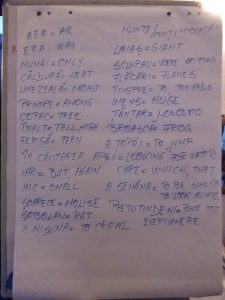 AER = AIR
ERA = WAS
NUMAI = ONLY
CĂLDURĂ = HEAT
UMEZEALĂ = MOIST
PRINTRE = AMONG
COPAC = TREE
ÎNALT = TALL, HIGH
FERIGĂ = FERN
ÎN CĂUTAREA APEI = LOOKING FOR WATER
IAR = BUT AGAIN
MIC = SMALL
ȘOARECE = MOUSE
ȘOBOLAN = RAT
A MIȘUNA = TO CRAWL
MUNTE/MUNȚI = MOUNTAIN
URIAȘ = GIANT
SCUIPAU = WERE SPITTING
FLĂCĂRI = FLAMES
ÎNSPRE = TO, TOWARDS
IMENS = HUGE
ȚÂNȚAR = MOSQUITO
BROASCĂ = FROG
A ȚOPĂI = TO JUMP
CARE = WHICH, THAT
A SEMĂNA = TO BE SIMILAR
TO LOOK ALIKE
PRETUTINDENI = PESTE TOT
EVERYWHERE